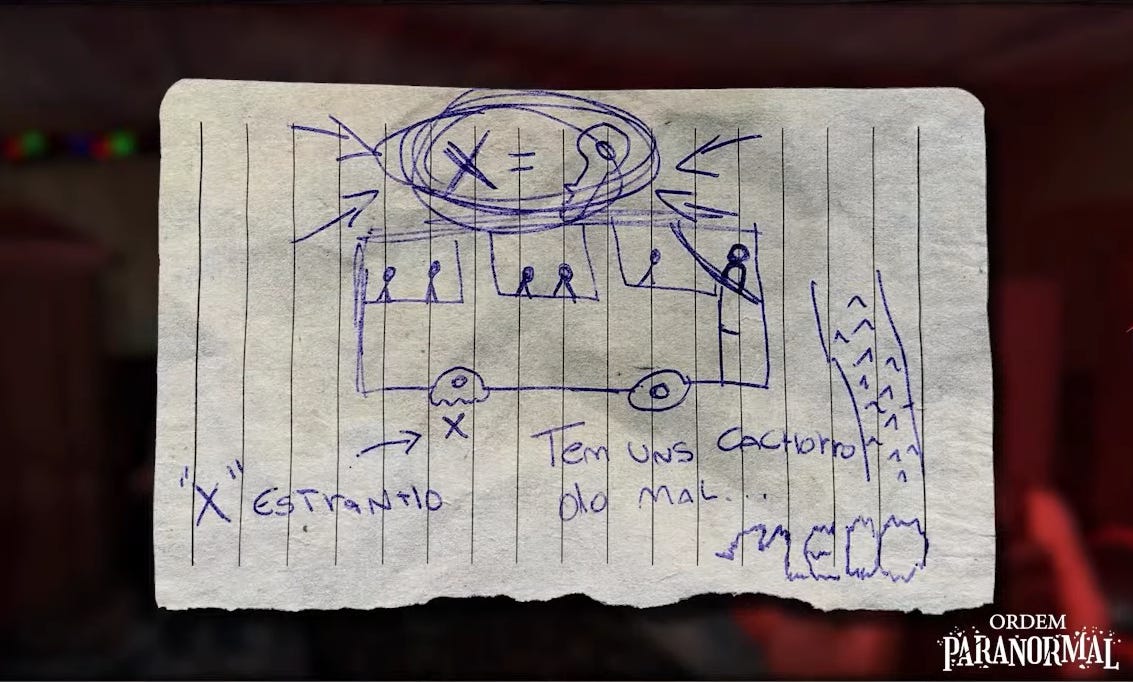 X =
X
"X" ESTRANHO
Tem UNS CACHORRO
do mal...
MEDO
ORDEM
PARANORMAL